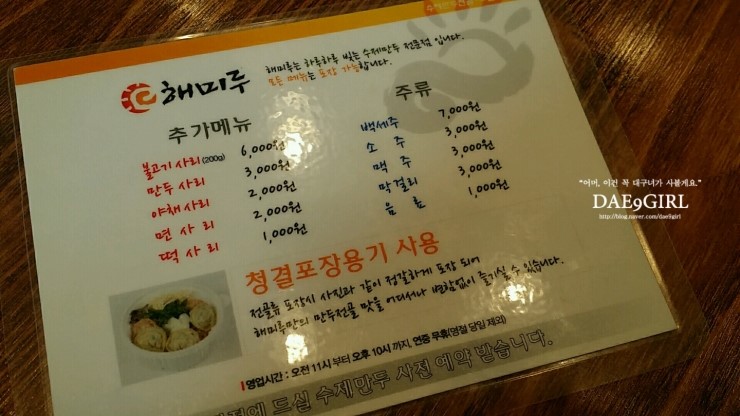 수제만두전문
해미루
해미루는 하루하루 빚는 수제만두 전문점 입니다.
모든 메뉴는 포장 가능합니다.
추가메뉴
불고기 사리(200g) 6,000원
만두 사리 3,000원
야채 사리 2,000원
면 사 리 2,000원
떡 사 리 1,000원
주류
백세주 7,000원
소 주 3,000원
맥 주 3,000원
막걸리 3,000원
음 료 1,000원
청결포장용기 사용
전골류 포장시 사진과 같이 정갈하게 포장 되어
해미루만의 만두전골 맛을 어디서나 변함없이 즐기실 수 있습니다.
영업시간 : 오전 11시 부터 오후 10시 까지. 연중 무휴(명절 당일 제외)
드실 수제만두 사전 예약 받습니다.
"어머, 이건 꼭 대구녀가 사볼게요."
DAE9GIRL
http://blog.naver.com/dae9girl